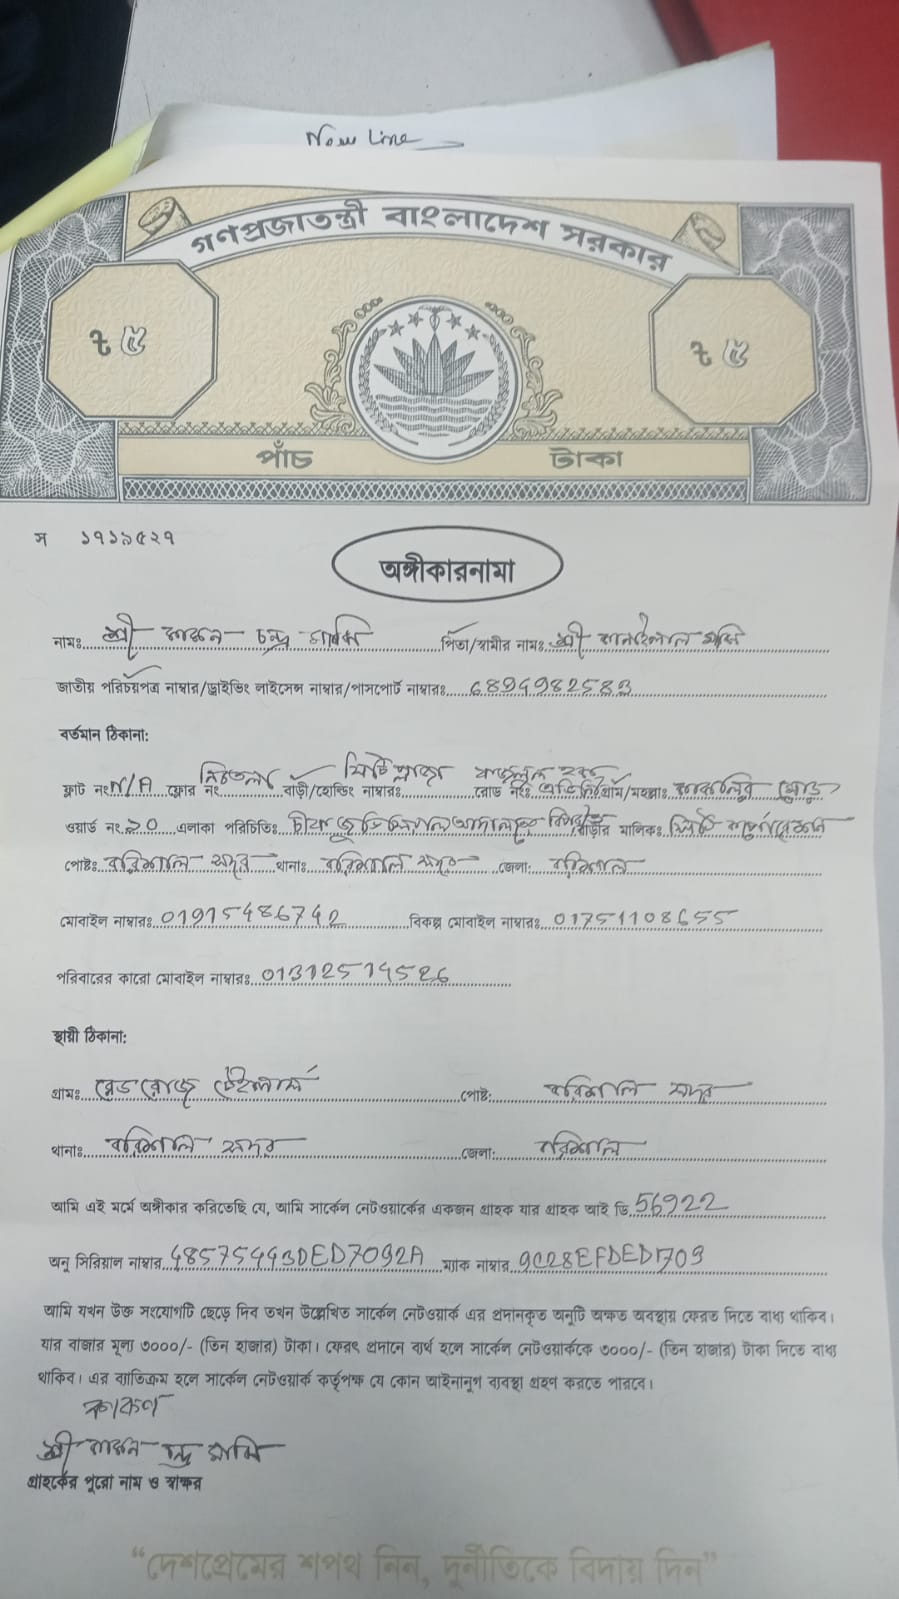 New Line
গণপ্রজাতন্ত্রী বাংলাদেশ সরকার
৳ ৫ ৳ ৫
পাঁচ টাকা
স ১৭১৯৫২৭
অঙ্গীকারনামা
নামঃ শ্রী চন্দ্র পিতা/স্বামীর নামঃ শ্রী কানাইলাল
জাতীয় পরিচয়পত্র নাম্বার/ড্রাইভিং লাইসেন্স নাম্বার/পাসপোর্ট নাম্বারঃ 6894982583
বর্তমান ঠিকানা:
ফ্লাট নংঃ N/A ফ্লোর নংঃ নিচতলা বাড়ী/হোল্ডিং নাম্বারঃ সিটি প্লাজা রোড নংঃ ফজলুল হক এভিনিউ গ্রাম/মহল্লাঃ মোড়
ওয়ার্ড নংঃ ১০ এলাকা পরিচিতিঃ বিপরীতে বাড়ীর মালিকঃ সিটি কর্পোরেশন
পোষ্টঃ বরিশাল সদর থানাঃ বরিশাল সদর জেলা: বরিশাল
মোবাইল নাম্বারঃ 01915486742 বিকল্প মোবাইল নাম্বারঃ 01751108655
পরিবারের কারো মোবাইল নাম্বারঃ 01312514526
স্থায়ী ঠিকানা:
গ্রামঃ রেড রোজ টেইলার্স পোষ্ট: বরিশাল সদর
থানাঃ বরিশাল সদর জেলা: বরিশাল
আমি এই মর্মে অঙ্গীকার করিতেছি যে, আমি সার্কেল নেটওয়ার্কের একজন গ্রাহক যার গ্রাহক আই ডি 56922
অনু সিরিয়াল নাম্বার 48575443DED7092A ম্যাক নাম্বার 9C28EFDED1709
আমি যখন উক্ত সংযোগটি ছেড়ে দিব তখন উল্লেখিত সার্কেল নেটওয়ার্ক এর প্রদানকৃত অনুটি অক্ষত অবস্থায় ফেরত দিতে বাধ্য থাকিব।
যার বাজার মূল্য ৩০০০/- (তিন হাজার) টাকা। ফেরৎ প্রদানে ব্যর্থ হলে সার্কেল নেটওয়ার্ককে ৩০০০/- (তিন হাজার) টাকা দিতে বাধ্য
থাকিব। এর ব্যতিক্রম হলে সার্কেল নেটওয়ার্ক কর্তৃপক্ষ যে কোন আইনানুগ ব্যবস্থা গ্রহণ করতে পারবে।
শ্রী চন্দ্র
গ্রাহকের পুরো নাম ও স্বাক্ষর
“দেশপ্রেমের শপথ নিন, দুর্নীতিকে বিদায় দিন”